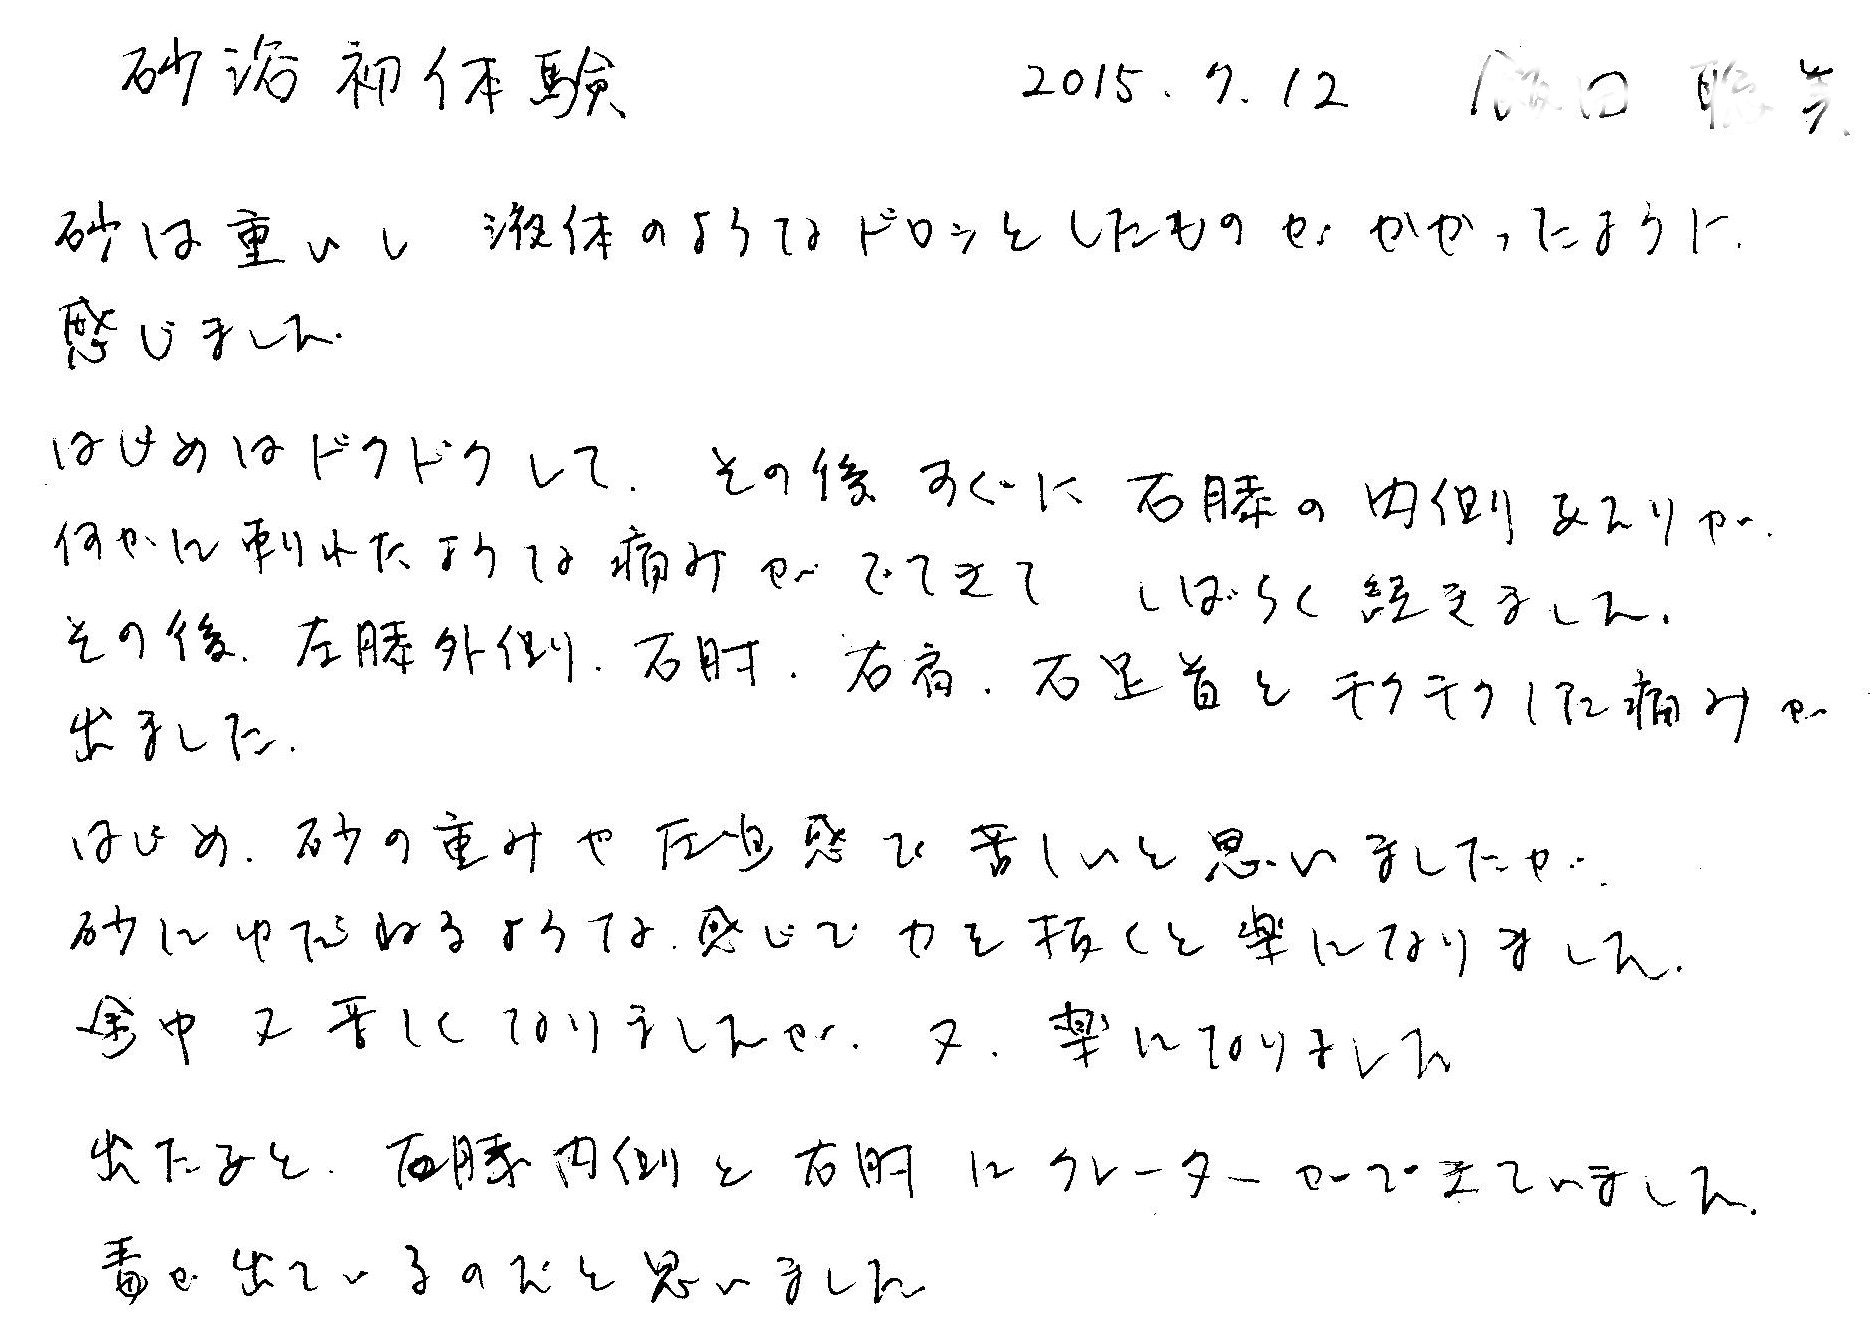 砂浴初体験 2015.7.12 田 聡美
砂は重いし 液体のようなドロッとしたものがかかったように
感じました
はじめはドクドクして、その後すぐに右膝の内側あたりが、
何かに刺れたような痛みがでてきて しばらく続きました。
その後、左膝外側、右肘、右肩、右足首とチクチクした痛みが
出ました。
はじめ、砂の重みや圧迫感で苦しいと思いましたが、
砂にゆだねるような感じで力を抜くと楽になりました。
途中又苦しくなりましたが、又、楽になりました
出たあと、右膝内側と右肘にクレーターができていました。
毒が出ているのだと思いました